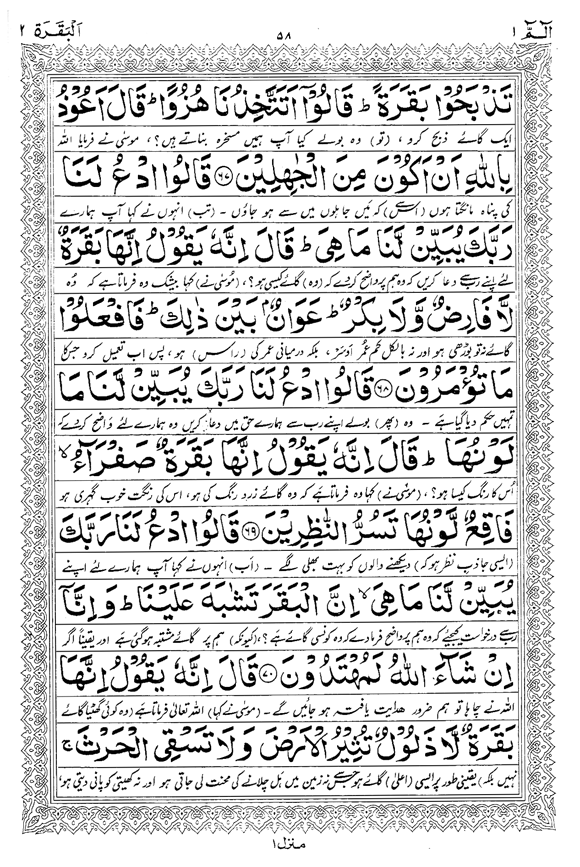 الٓمّٓ ١ ٥٨ اَلْبَقَرَة ٢
تَذْبَحُوْا بَقَرَةً ؕ قَالُوْۤا اَتَتَّخِذُنَا هُزُوًا ؕ قَالَ اَعُوْذُ
ایک گائے ذبح کرو ، (تو) وہ بولے کیا آپ ہمیں مسخرہ بناتے ہیں؟ ، موسٰیؑ نے فرمایا اللہ
بِاللّٰهِ اَنْ اَكُوْنَ مِنَ الْجٰهِلِيْنَ ﴿٦٧﴾ قَالُوا ادْعُ لَنَا
کی پناہ مانگتا ہوں (اس سے) کہ میں جاہلوں میں سے ہو جاؤں ۔ (تب) انہوں نے کہا آپ ہمارے
رَبَّكَ يُبَيِّنْ لَّنَا مَا هِىَ ؕ قَالَ اِنَّهٗ يَقُوْلُ اِنَّهَا بَقَرَةٌ
لئے اپنے رب سے دعا کریں کہ وہ ہم پر واضح کر دے کہ (وہ) گائے کیسی ہو؟ ، (موسٰیؑ نے) کہا بیشک وہ فرماتا ہے کہ وہ
لَّا فَارِضٌ وَّلَا بِكْرٌ ؕ عَوَانٌۢ بَيْنَ ذٰلِكَ ؕ فَافْعَلُوْا
گائے نہ تو بوڑھی ہو اور نہ بالکل کم عمر اوسر ، بلکہ درمیانی عمر کی (راس) ہو ، پس اب تعمیل کرو جس کا
مَا تُؤْمَرُوْنَ ﴿٦٨﴾ قَالُوا ادْعُ لَنَا رَبَّكَ يُبَيِّنْ لَّنَا مَا
تمہیں حکم دیا گیا ہے ۔ وہ (پھر) بولے اپنے رب سے ہمارے حق میں دعا کریں وہ ہمارے لئے واضح کر دے کہ
لَوْنُهَا ؕ قَالَ اِنَّهٗ يَقُوْلُ اِنَّهَا بَقَرَةٌ صَفْرَآءُ ۙ
اُس کا رنگ کیسا ہو؟ ، (موسٰیؑ نے) کہا وہ فرماتا ہے کہ وہ گائے زرد رنگ کی ہو ، اس کی رنگت خوب گہری ہو
فَاقِعٌ لَّوْنُهَا تَسُرُّ النّٰظِرِيْنَ ﴿٦٩﴾ قَالُوا ادْعُ لَنَا رَبَّكَ
(ایسی جاذبِ نظر ہو کہ) دیکھنے والوں کو بہت بھلی لگے ۔ (اَب) انہوں نے کہا آپ ہمارے لئے اپنے
يُبَيِّنْ لَّنَا مَا هِىَ ۙ اِنَّ الْبَقَرَ تَشٰبَهَ عَلَيْنَا ؕ وَاِنَّاۤ
رب سے درخواست کیجئے کہ وہ ہم پر واضح فرما دے کہ وہ کونسی گائے ہے؟ ، (کیونکہ) ہم پر گائے مشتبہ ہو گئی ہے اور یقیناً اگر
اِنْ شَآءَ اللّٰهُ لَمُهْتَدُوْنَ ﴿٧٠﴾ قَالَ اِنَّهٗ يَقُوْلُ اِنَّهَا
اللہ نے چاہا تو ہم ضرور ہدایت یافتہ ہو جائیں گے ۔ (موسٰیؑ نے کہا) اللہ تعالیٰ فرماتا ہے (وہ کوئی گھٹیا گائے
بَقَرَةٌ لَّا ذَلُوْلٌ تُثِيْرُ الْاَرْضَ وَلَا تَسْقِى الْحَرْثَ ۚ
نہیں بلکہ) یقینی طور پر ایسی (اعلیٰ) گائے ہو جس سے نہ زمین میں ہل چلانے کی محنت لی جاتی ہو اور نہ کھیتی کو پانی دیتی ہو ،
منزل ١